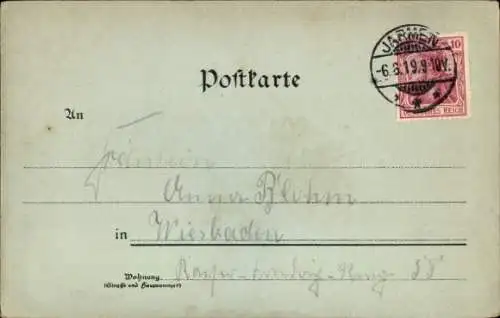 JARMEN
10
-6.6.19. 9-10V.
DEUTSCHES REICH
Postkarte
An
Fräulein
Anna Blohm
in Wiesbaden
Wohnung
(Straße und Hausnummer)
Ring